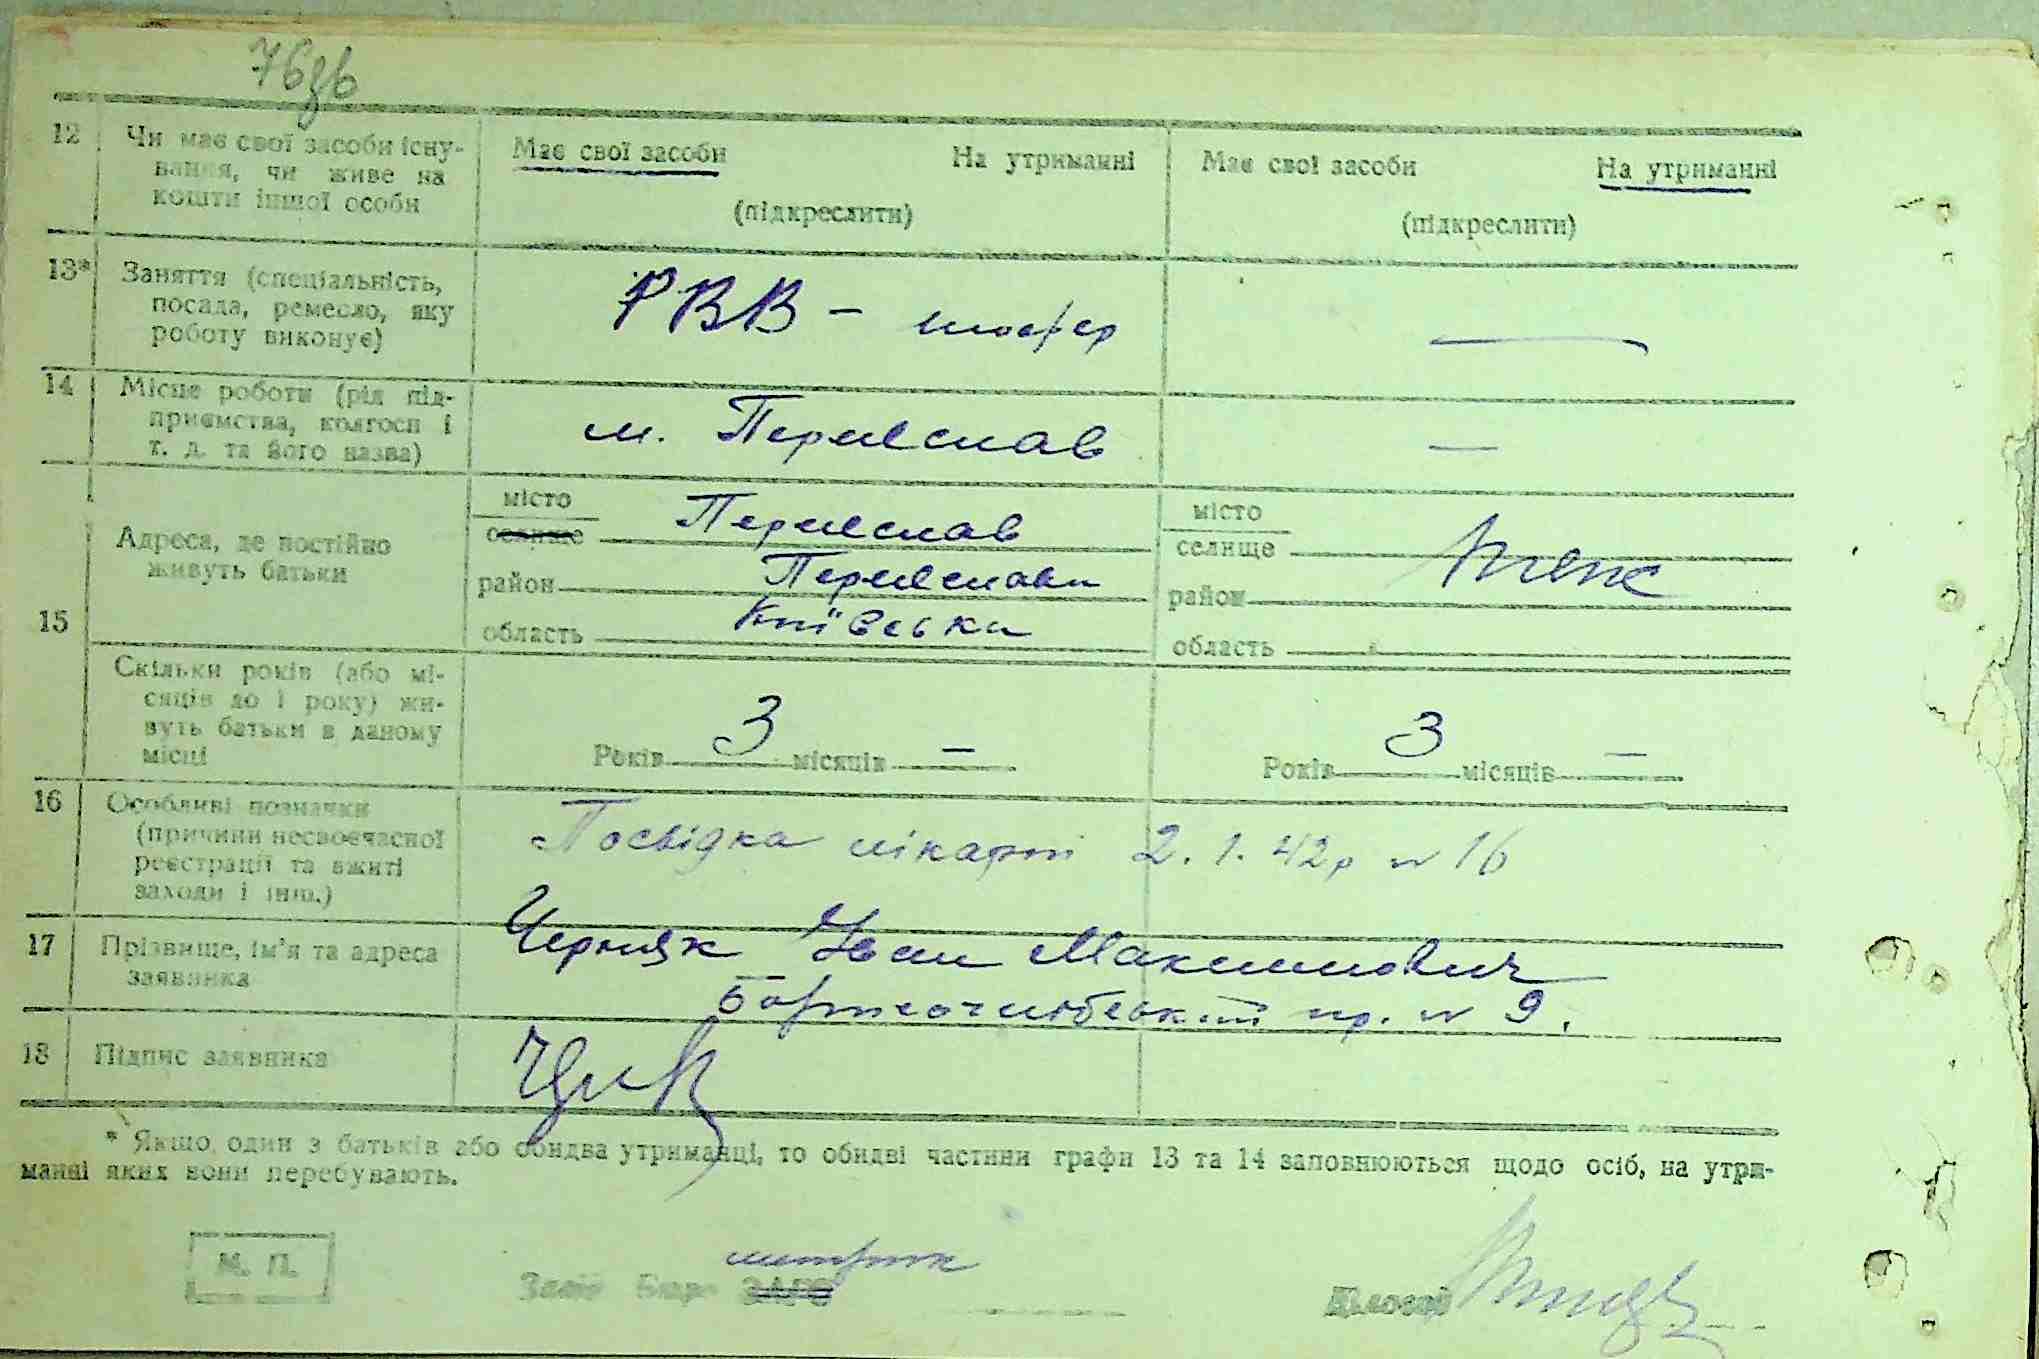 76зв
12 Чи має свої засоби існу-
вання, чи живе на
кошти іншої особи
Має свої засоби На утриманні
(підкреслити)
Має свої засоби На утриманні
(підкреслити)
13* Заняття (спеціальність,
посада, ремесло, яку
роботу виконує)
РВВ – шофер
—
14 Місце роботи (рід під-
приємства, колгосп і
т. д. та його назва)
м. Переяслав
—
15 Адреса, де постійно
живуть батьки
місто
селище Переяслав
район Переяслави
область Київськи
місто
селище
район
область
Скільки років (або мі-
сяців до 1 року) жи-
вуть батьки в даному
місці
Років 3 місяців —
Років 3 місяців —
16 Особливі позначки
(причини несвоєчасної
реєстрації та вжиті
заходи і інш.)
Посвідка лікарні 2.1.42р № 16
17 Прізвище, ім'я та адреса
заявника
Черняк Іван Максимович
пр. № 9.
18 Підпис заявника
* Якщо один з батьків або обидва утриманці, то обидві частини графи 13 та 14 заповнюються щодо осіб, на утри-
манні яких вони перебувають.
М. П.
метрик
Зав. Бюро ЗАГС